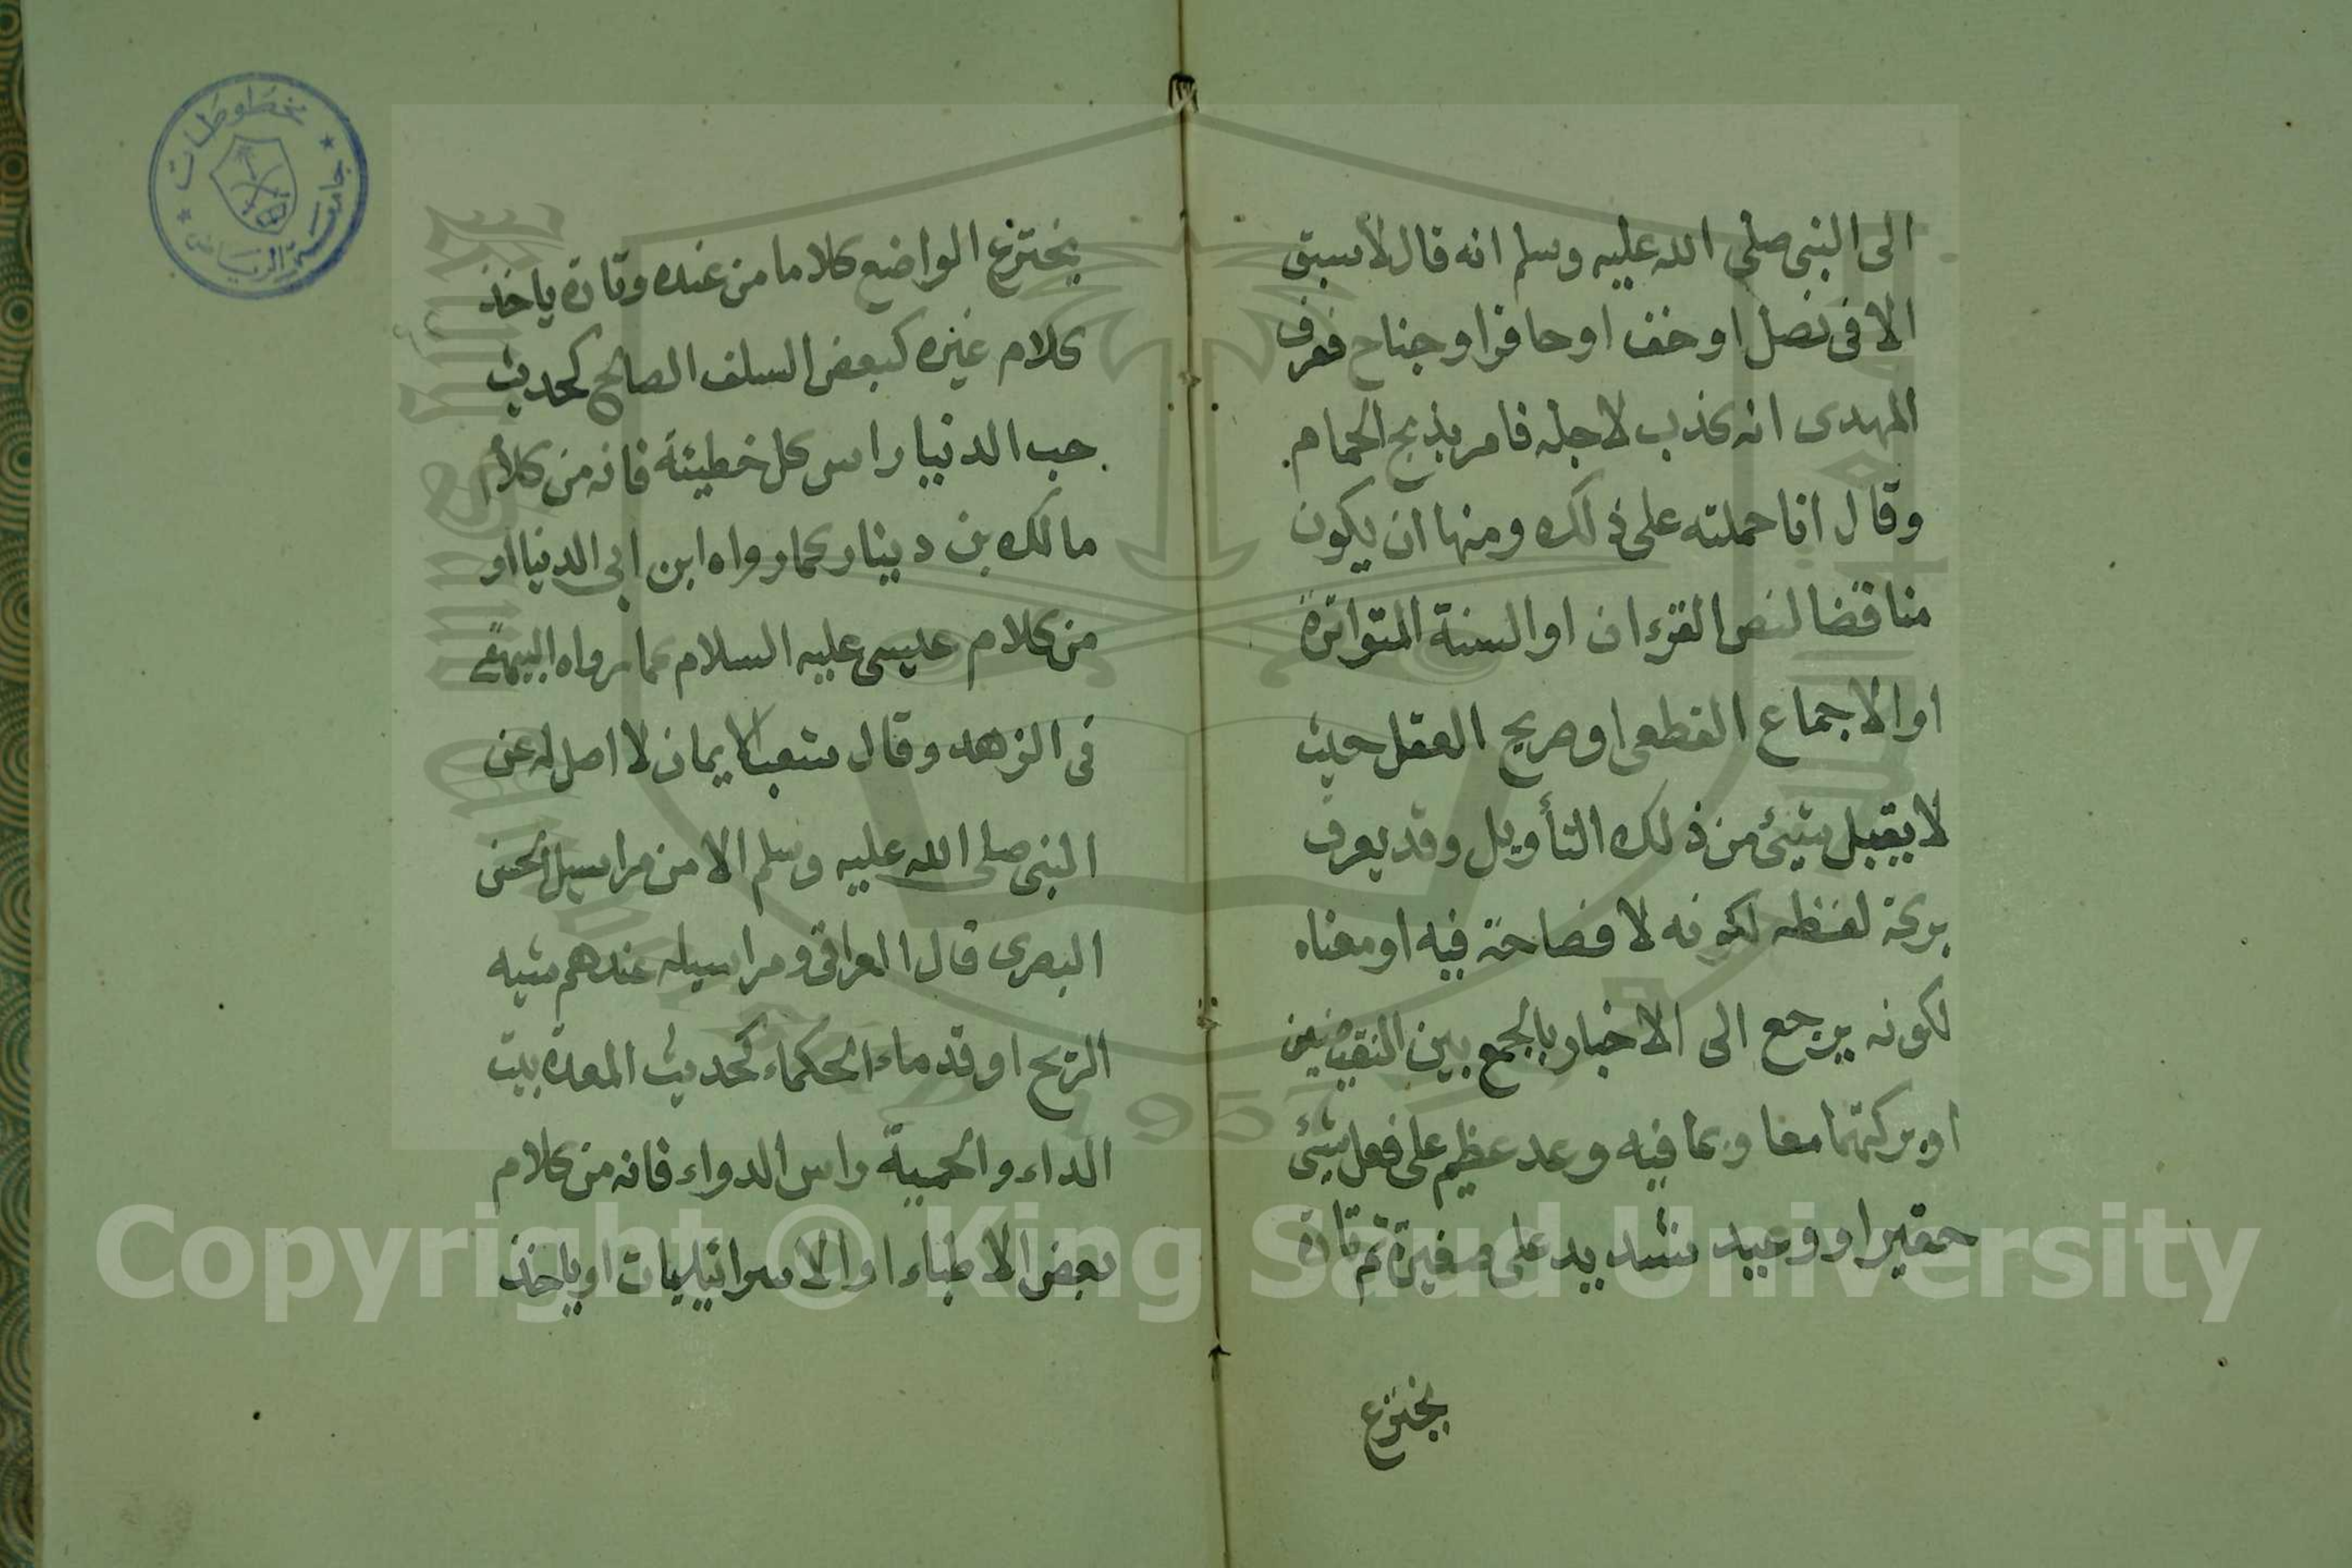 الى النبي صلى الله عليه وسلم انه قال لا سبق
الا فى نصل او خف او حافر او جناح فعرف
المهدى انه كذب لاجله فامر بذبح الحمام
وقال انا حملته على ذلك ومنها ان يكون
مناقضا لنص القرءان او السنة المتواترة
او الاجماع القطعى او صريح العقل حيث
لا يقبل شيئ من ذلك التأويل وقد يعرف
بركة لفظه لكونه لا فصاحة فيه او معناه
لكونه يرجع الى الاخبار بالجمع بين النقيضين
او بركتهما معا وبما فيه وعد عظيم على فعل شيئ
حقير او وعيد شديد على صغيرة ثم تارة
يخترع
يخترع الواضع كلاما من عنده وتارة ياخذ
كلام غيره كبعض السلف الصالح كحديث
حب الدنيا راس كل خطيئة فانه من كلام
مالك بن دينار كما رواه ابن ابى الدنيا او
من كلام عيسى عليه السلام كما رواه البيهقى
فى الزهد وقال شعب الايمان لا اصل له عن
النبى صلى الله عليه وسلم الا من مراسيل الحسن
البصرى قال العراقى ومراسيله عندهم شبه
الريح او قدماء الحكماء كحديث المعدة بيت
الداء والحمية راس الدواء فانه من كلام
بعض الاطباء او الاسرائيليات او ياخذ
مخطوطات
جامعة الرياض
Copyright © King Saud University
1957